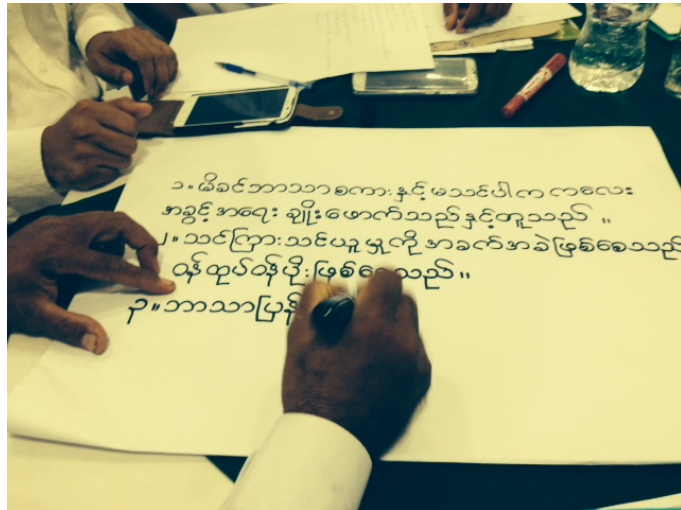 ၁။ မိခင်ဘာသာစကား နှင့် မသင်ပါက ကလေး
အခွင့်အရေး ချိုးဖောက်သည်နှင့်တူသည် ။
၂။ သင်ကြားသင်ယူမှုကို အခက်အခဲဖြစ်စေသည်
ဝန်ထုပ်ဝန်ပိုးဖြစ်စေသည် ။
၃။ ဘာသာပြန်